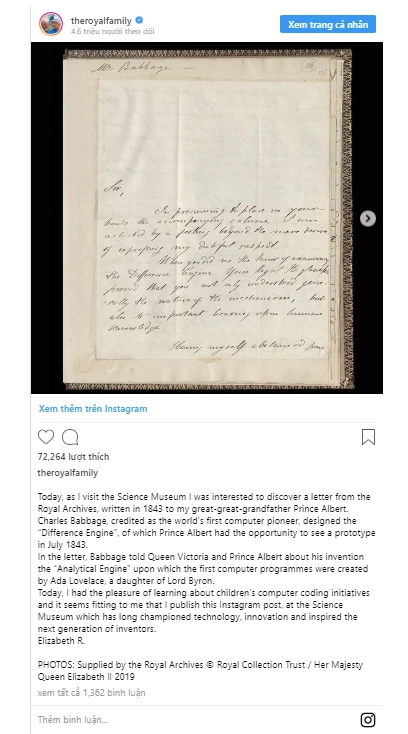 theroyalfamily
4.6 triệu người theo dõi
Xem trang cá nhân
Mr. Babbage
Sir,
In presuming to place in your
hands the accompanying volume I am
actuated by a feeling beyond the mere desire
of expressing my dutiful respect.
When you did me the honor of examining
the Difference Engine Your Royal Highness
proved that you not only understood gene-
rally the nature of the mechanism, but
also its important bearing upon human
knowledge.
Having myself obtained
Xem thêm trên Instagram
72,264 lượt thích
theroyalfamily
Today, as I visit the Science Museum I was interested to discover a letter from the
Royal Archives, written in 1843 to my great-great-grandfather Prince Albert.
Charles Babbage, credited as the world's first computer pioneer, designed the
"Difference Engine", of which Prince Albert had the opportunity to see a prototype
in July 1843.
In the letter, Babbage told Queen Victoria and Prince Albert about his invention
the "Analytical Engine" upon which the first computer programmes were created
by Ada Lovelace, a daughter of Lord Byron.
Today, I had the pleasure of learning about children's computer coding initiatives
and it seems fitting to me that I publish this Instagram post, at the Science
Museum which has long championed technology, innovation and inspired the
next generation of inventors.
Elizabeth R.
PHOTOS: Supplied by the Royal Archives © Royal Collection Trust / Her Majesty
Queen Elizabeth II 2019
xem tất cả 1,362 bình luận
Thêm bình luận...